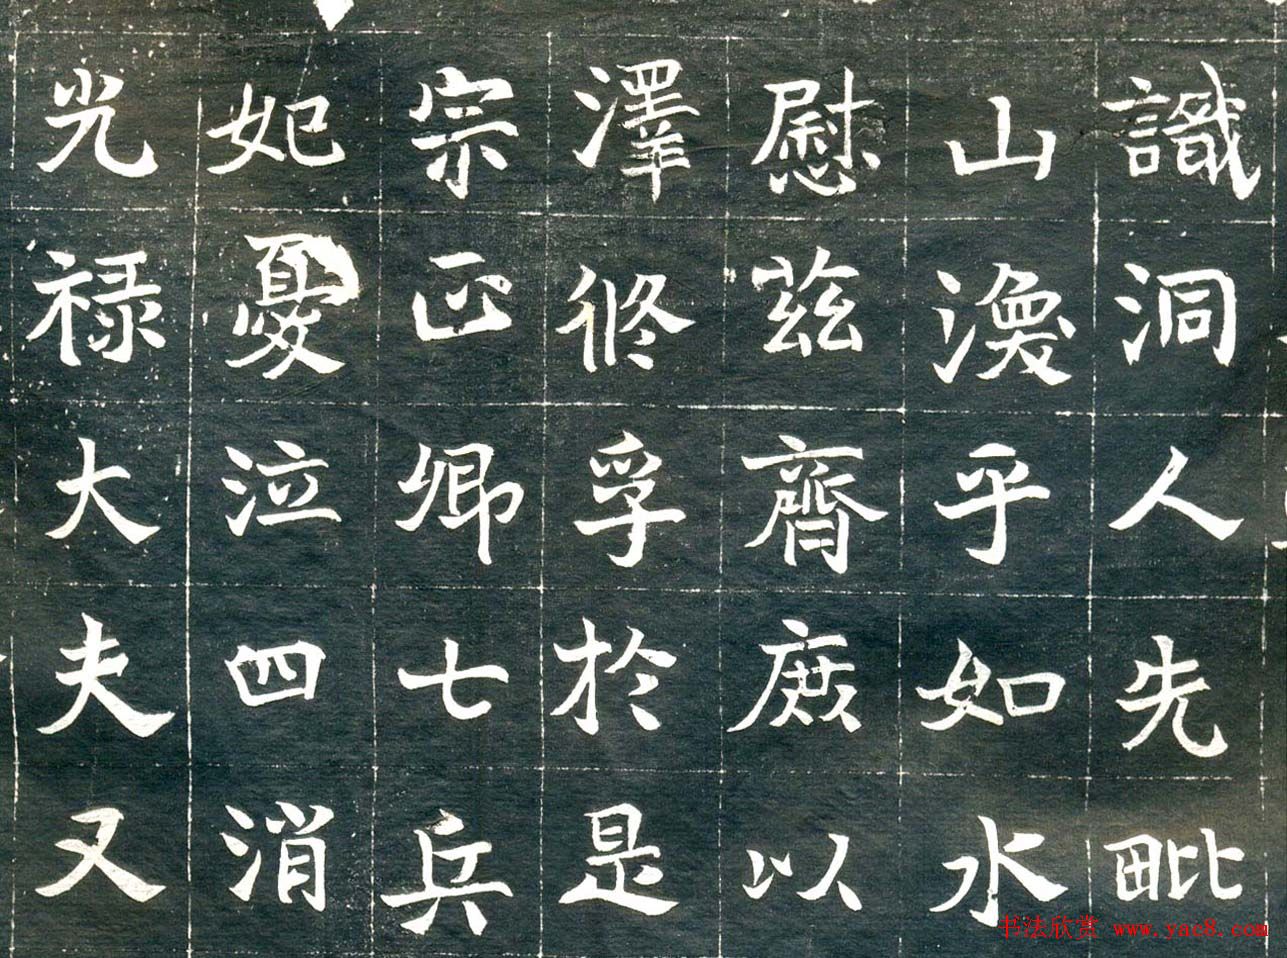 識洞人先毗
山渙乎如水
慰茲齊庶以
澤修孚於是
宗正卿七兵
妃憂泣四消
光禄大夫又
书法欣赏 www.yac8.com